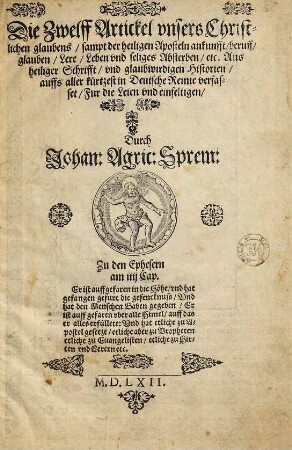 Die Zwelff Artickel vnsers Christ-
lichen glaubens / sampt der heiligen Aposteln ankunfft / beruff /
glauben / Lere / Leben vnd seliges Absterben / etc. Aus
heiliger Schrifft / vnd glaubwirdigen Historien /
auffs aller kürtzest in Deutsche Reime verfas-
set / Fur die Leien vnd einfeltigen /
Durch
Johan: Agric: Sprem:
Zu den Ephesern
am iiij Cap.
Er ist auffgefaren in die Höhe / vnd hat
gefangen gefurt die gefencknuß / Vnd
hat den Menschen Gaben gegeben / Er
ist auff gefaren vber alle Himel / auff das
er alles erfüllete: Vnd hat etliche zu A-
postel gesetzt / etliche aber zu Propheten
etliche zu Euangelisten / etliche zu Hir-
ten vnd Lerern etc.
M. D. LXII.